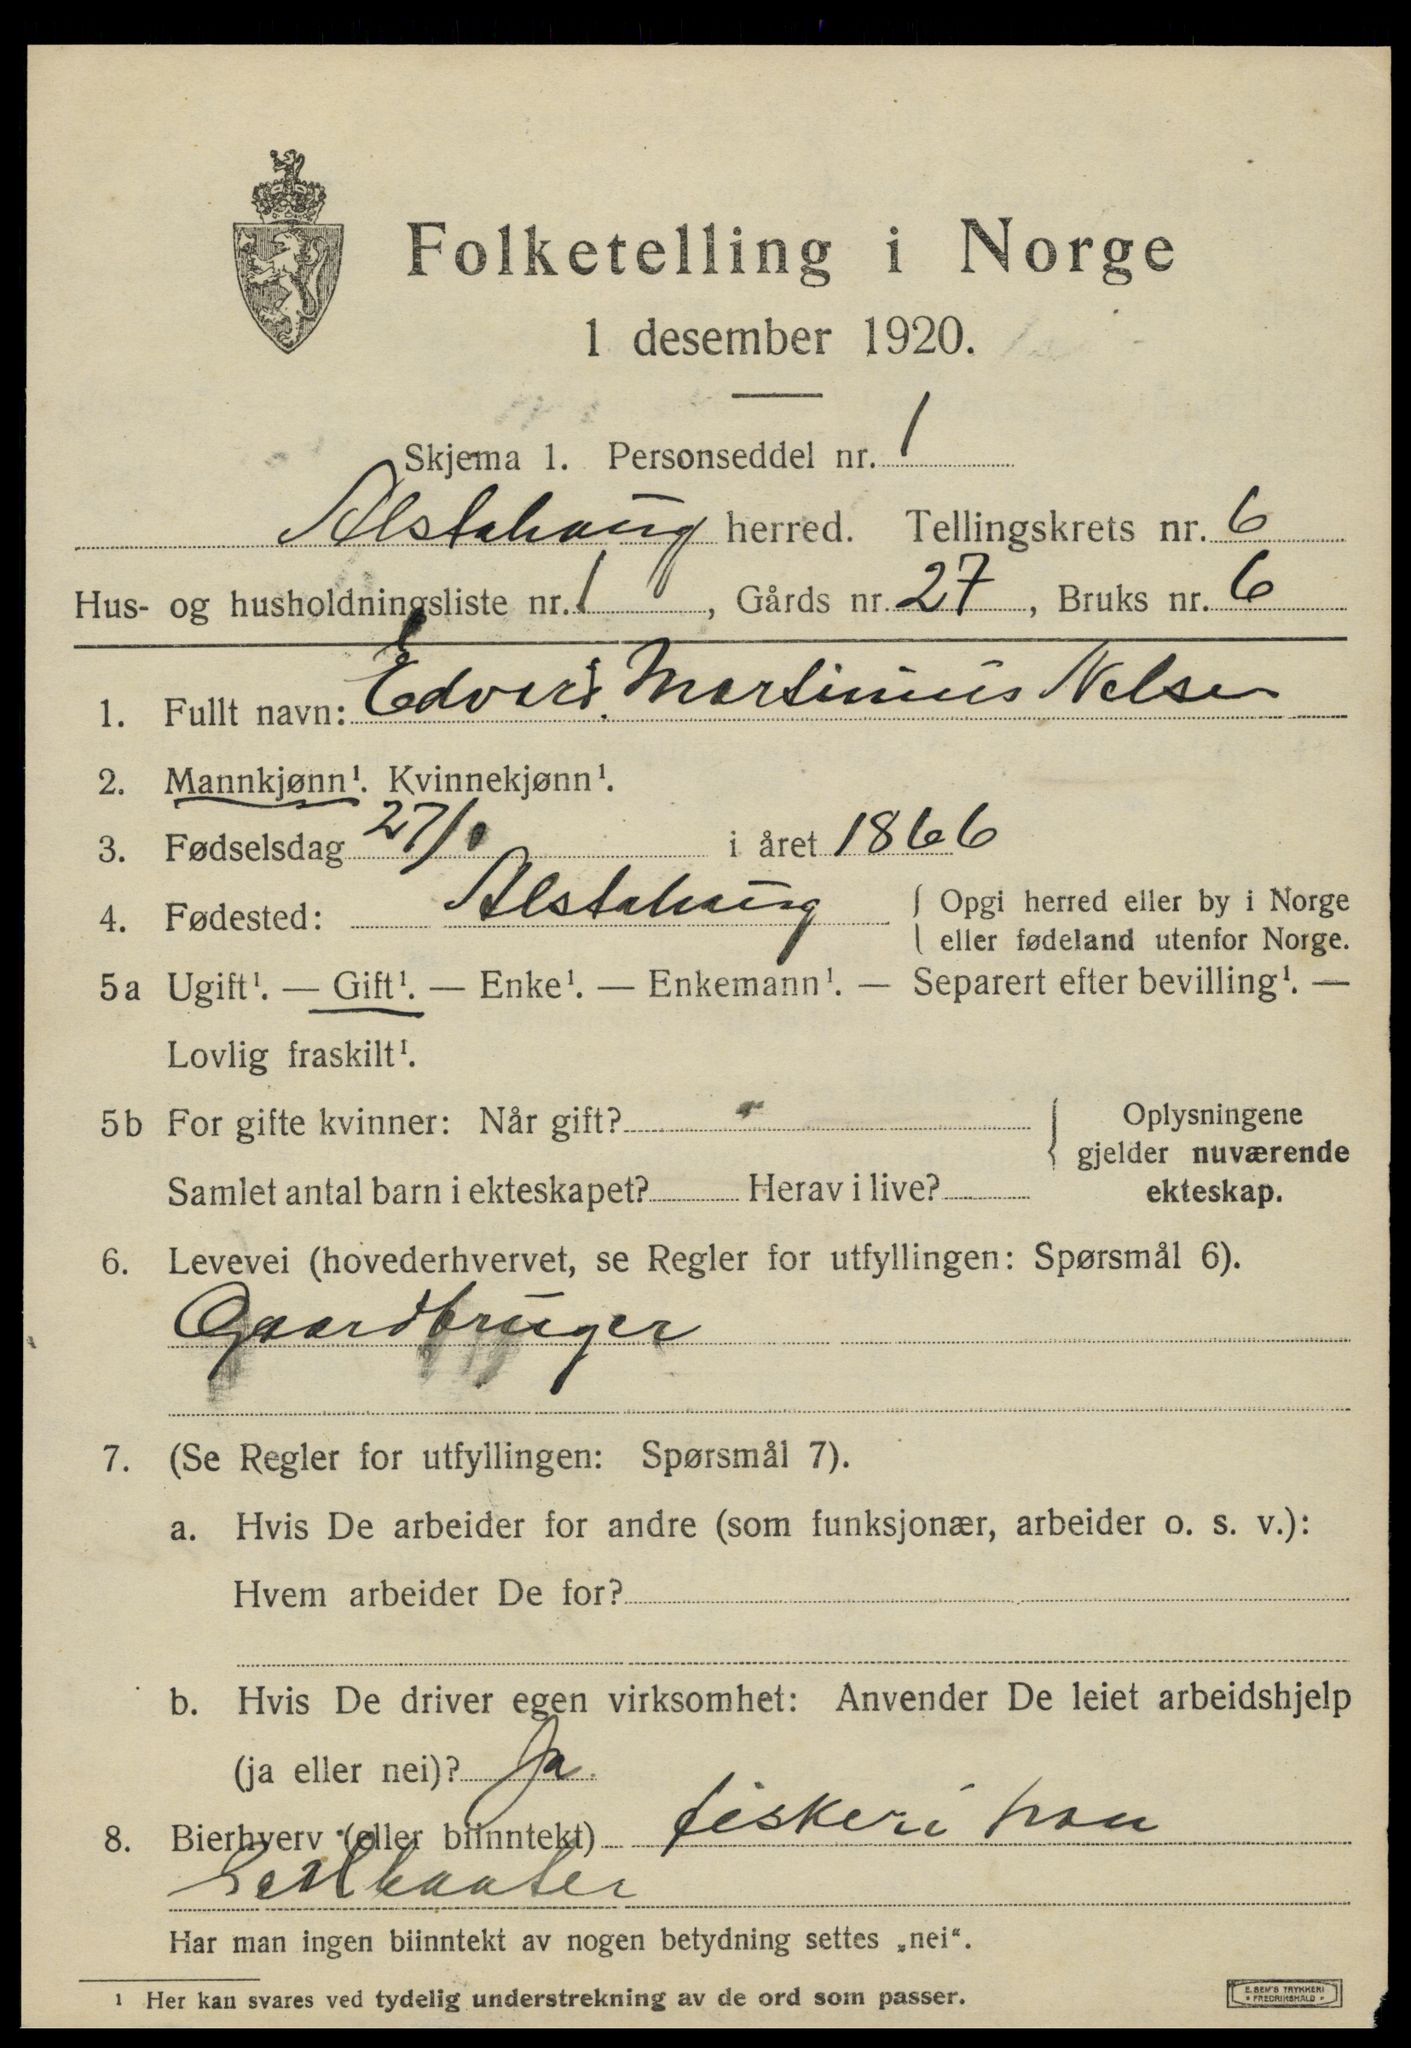 Folketelling i Norge
1 desember 1920.
Skjema 1. Personseddel nr. 1
Alstahaug herred. Tellingskrets nr. 6
Hus- og husholdningsliste nr. 1, Gårds nr. 27, Bruks nr. 6
1. Fullt navn: Edvard Martinius Nelsen
2. Mannkjønn¹. Kvinnekjønn¹.
3. Fødselsdag 27/ i året 1866
4. Fødested: Alstahaug { Opgi herred eller by i Norge
eller fødeland utenfor Norge.
5a Ugift¹. — Gift¹. — Enke¹. — Enkemann¹. — Separert efter bevilling¹. —
Lovlig fraskilt¹.
5b For gifte kvinner: Når gift? { Oplysningene
gjelder nuværende
Samlet antal barn i ekteskapet? Herav i live? ekteskap.
6. Levevei (hovederhvervet, se Regler for utfyllingen: Spørsmål 6).
Gaardbruger
7. (Se Regler for utfyllingen: Spørsmål 7).
a. Hvis De arbeider for andre (som funksjonær, arbeider o. s. v.):
Hvem arbeider De for?
b. Hvis De driver egen virksomhet: Anvender De leiet arbeidshjelp
(ja eller nei)? Ja.
8. Bierhverv (eller biinntekt) fiskeri paa
Har man ingen biinntekt av nogen betydning settes „nei“.
¹ Her kan svares ved tydelig understrekning av de ord som passer.
E. SEM'S TRYKKERI
FREDRIKSHALD